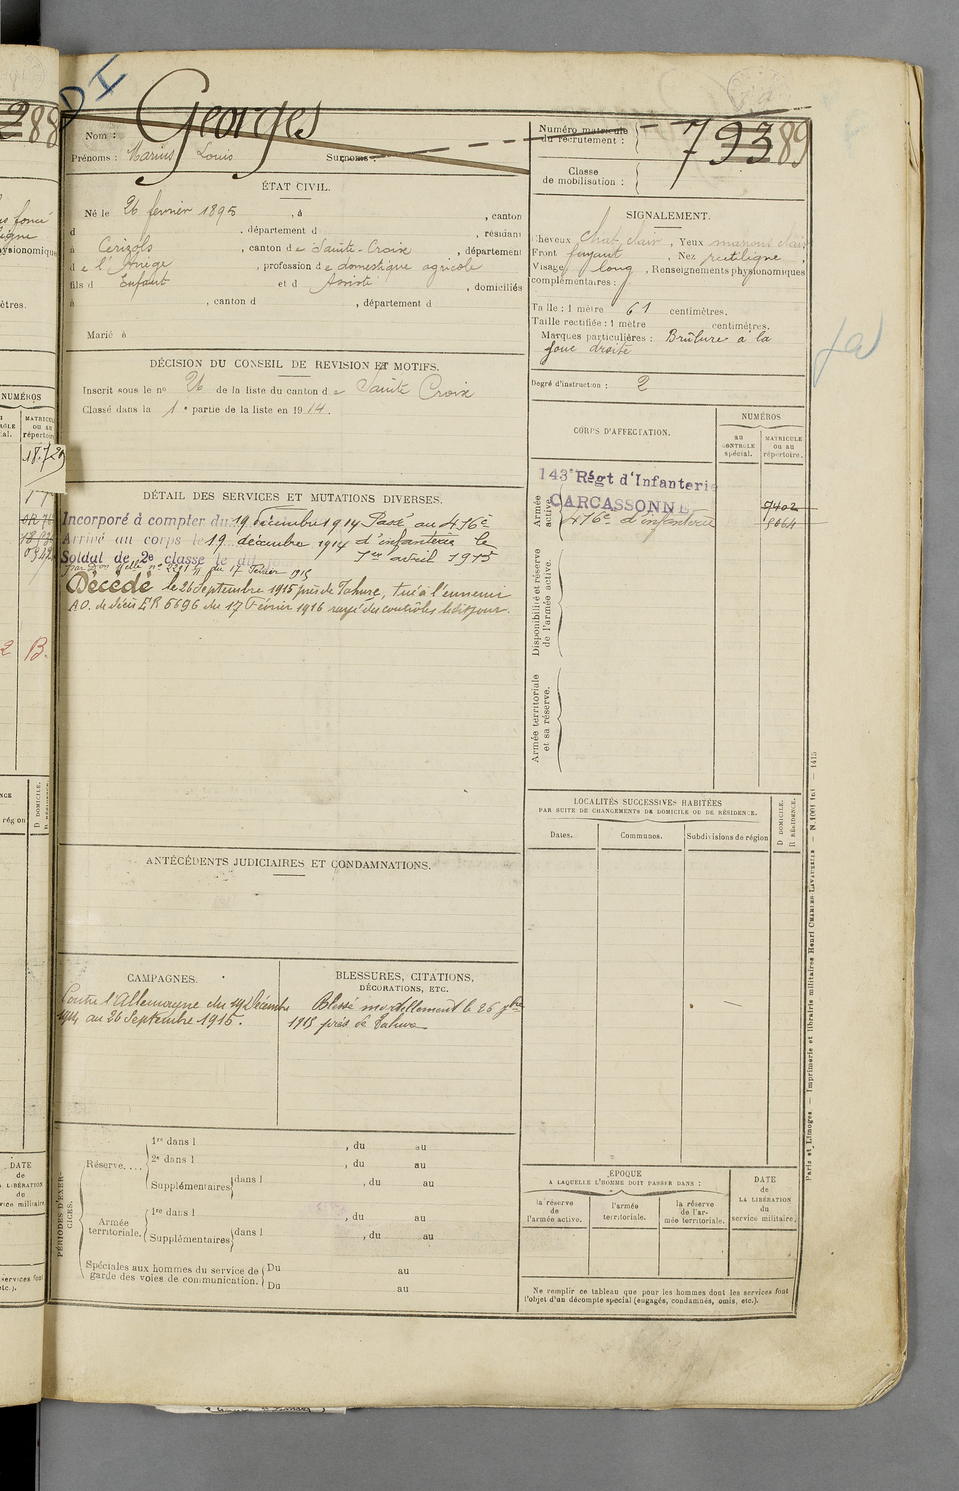 DI
Georges
Nom :
Prénoms : Marius Louis Surnoms :
Numéro matricule
du recrutement :
793
89
Classe
de mobilisation :
ÉTAT CIVIL.
Né le 26 fevrier 1895 , à , canton
d , département d , résidant
à Cerizols , canton de Sainte-Croix , département
de l'Ariège , profession de domestique agricole
fils d Enfant et d Assisté , domiciliés
à , canton d , département d
Marié à
SIGNALEMENT.
Cheveux chat. clair , Yeux marrons clair
Front fuyant , Nez rectiligne ,
Visage long , Renseignements physionomiques
complémentaires :
Taille : 1 mètre 61 centimètres.
Taille rectifiée : 1 mètre centimètres.
Marques particulières : Brûlure à la
joue droite
Degré d'instruction : 2
DÉCISION DU CONSEIL DE REVISION ET MOTIFS.
Inscrit sous le no 26 de la liste du canton de Sainte Croix
Classé dans la 1e partie de la liste en 1914.
CORPS D'AFFECTATION.
NUMÉROS
au
CONTROLE
spécial.
MATRICULE
ou au
répertoire.
Armée
active.
143e Régt d'Infanterie
CARCASSONNE
416e d'infanterie
9402
8064
Disponibilité et réserve
de l'armée active.
Armée territoriale
et sa réserve.
DÉTAIL DES SERVICES ET MUTATIONS DIVERSES.
Incorporé à compter du 19 décembre 1914 Passé au 416e
Arrivé au corps le 19 décembre 1914 d'infanterie le
Soldat de 2e classe le dit jour 1er avril 1915
du 17 Février 1915
Décédé le 26 Septembre 1915 près de Tahure, tué à l'ennemi
A.O. de décès ER 6696 du 17 Février 1916 rayé des contrôles ledit jour.
ANTÉCÉDENTS JUDICIAIRES ET CONDAMNATIONS.
LOCALITÉS SUCCESSIVES HABITÉES
PAR SUITE DE CHANGEMENTS DE DOMICILE OU DE RÉSIDENCE.
Dates.
Communes.
Subdivisions de région
D DOMICILE.
R RÉSIDENCE.
CAMPAGNES.
Contre l'Allemagne du 19 Décembre
1914 au 26 Septembre 1915.
BLESSURES, CITATIONS,
DÉCORATIONS, ETC.
Blessé mortellement le 26 7bre
1915 près de Tahure
PÉRIODES D'EXER-
CICES.
Réserve....
1re dans l , du au
2e dans l , du au
Supplémentaires dans l , du au
Armée
territoriale.
1re dans l , du au
Supplémentaires dans l , du au
Spéciales aux hommes du service de
garde des voies de communication.
Du au
Du au
ÉPOQUE
A LAQUELLE L'HOMME DOIT PASSER DANS :
la réserve
de
l'armée active.
l'armée
territoriale.
la réserve
de l'ar-
mée territoriale.
DATE
de
LA LIBÉRATION
du
service militaire.
Ne remplir ce tableau que pour les hommes dont les services font
l'objet d'un décompte spécial (engagés, condamnés, omis, etc.).
Paris et Limoges — Imprimerie et librairie militaires Henri CHARLES-LAVAUZELLE
288
NUMÉROS
MATRICULE
ou au
répertoire
B.
DATE
de
LA LIBÉRATION
du
service militaire